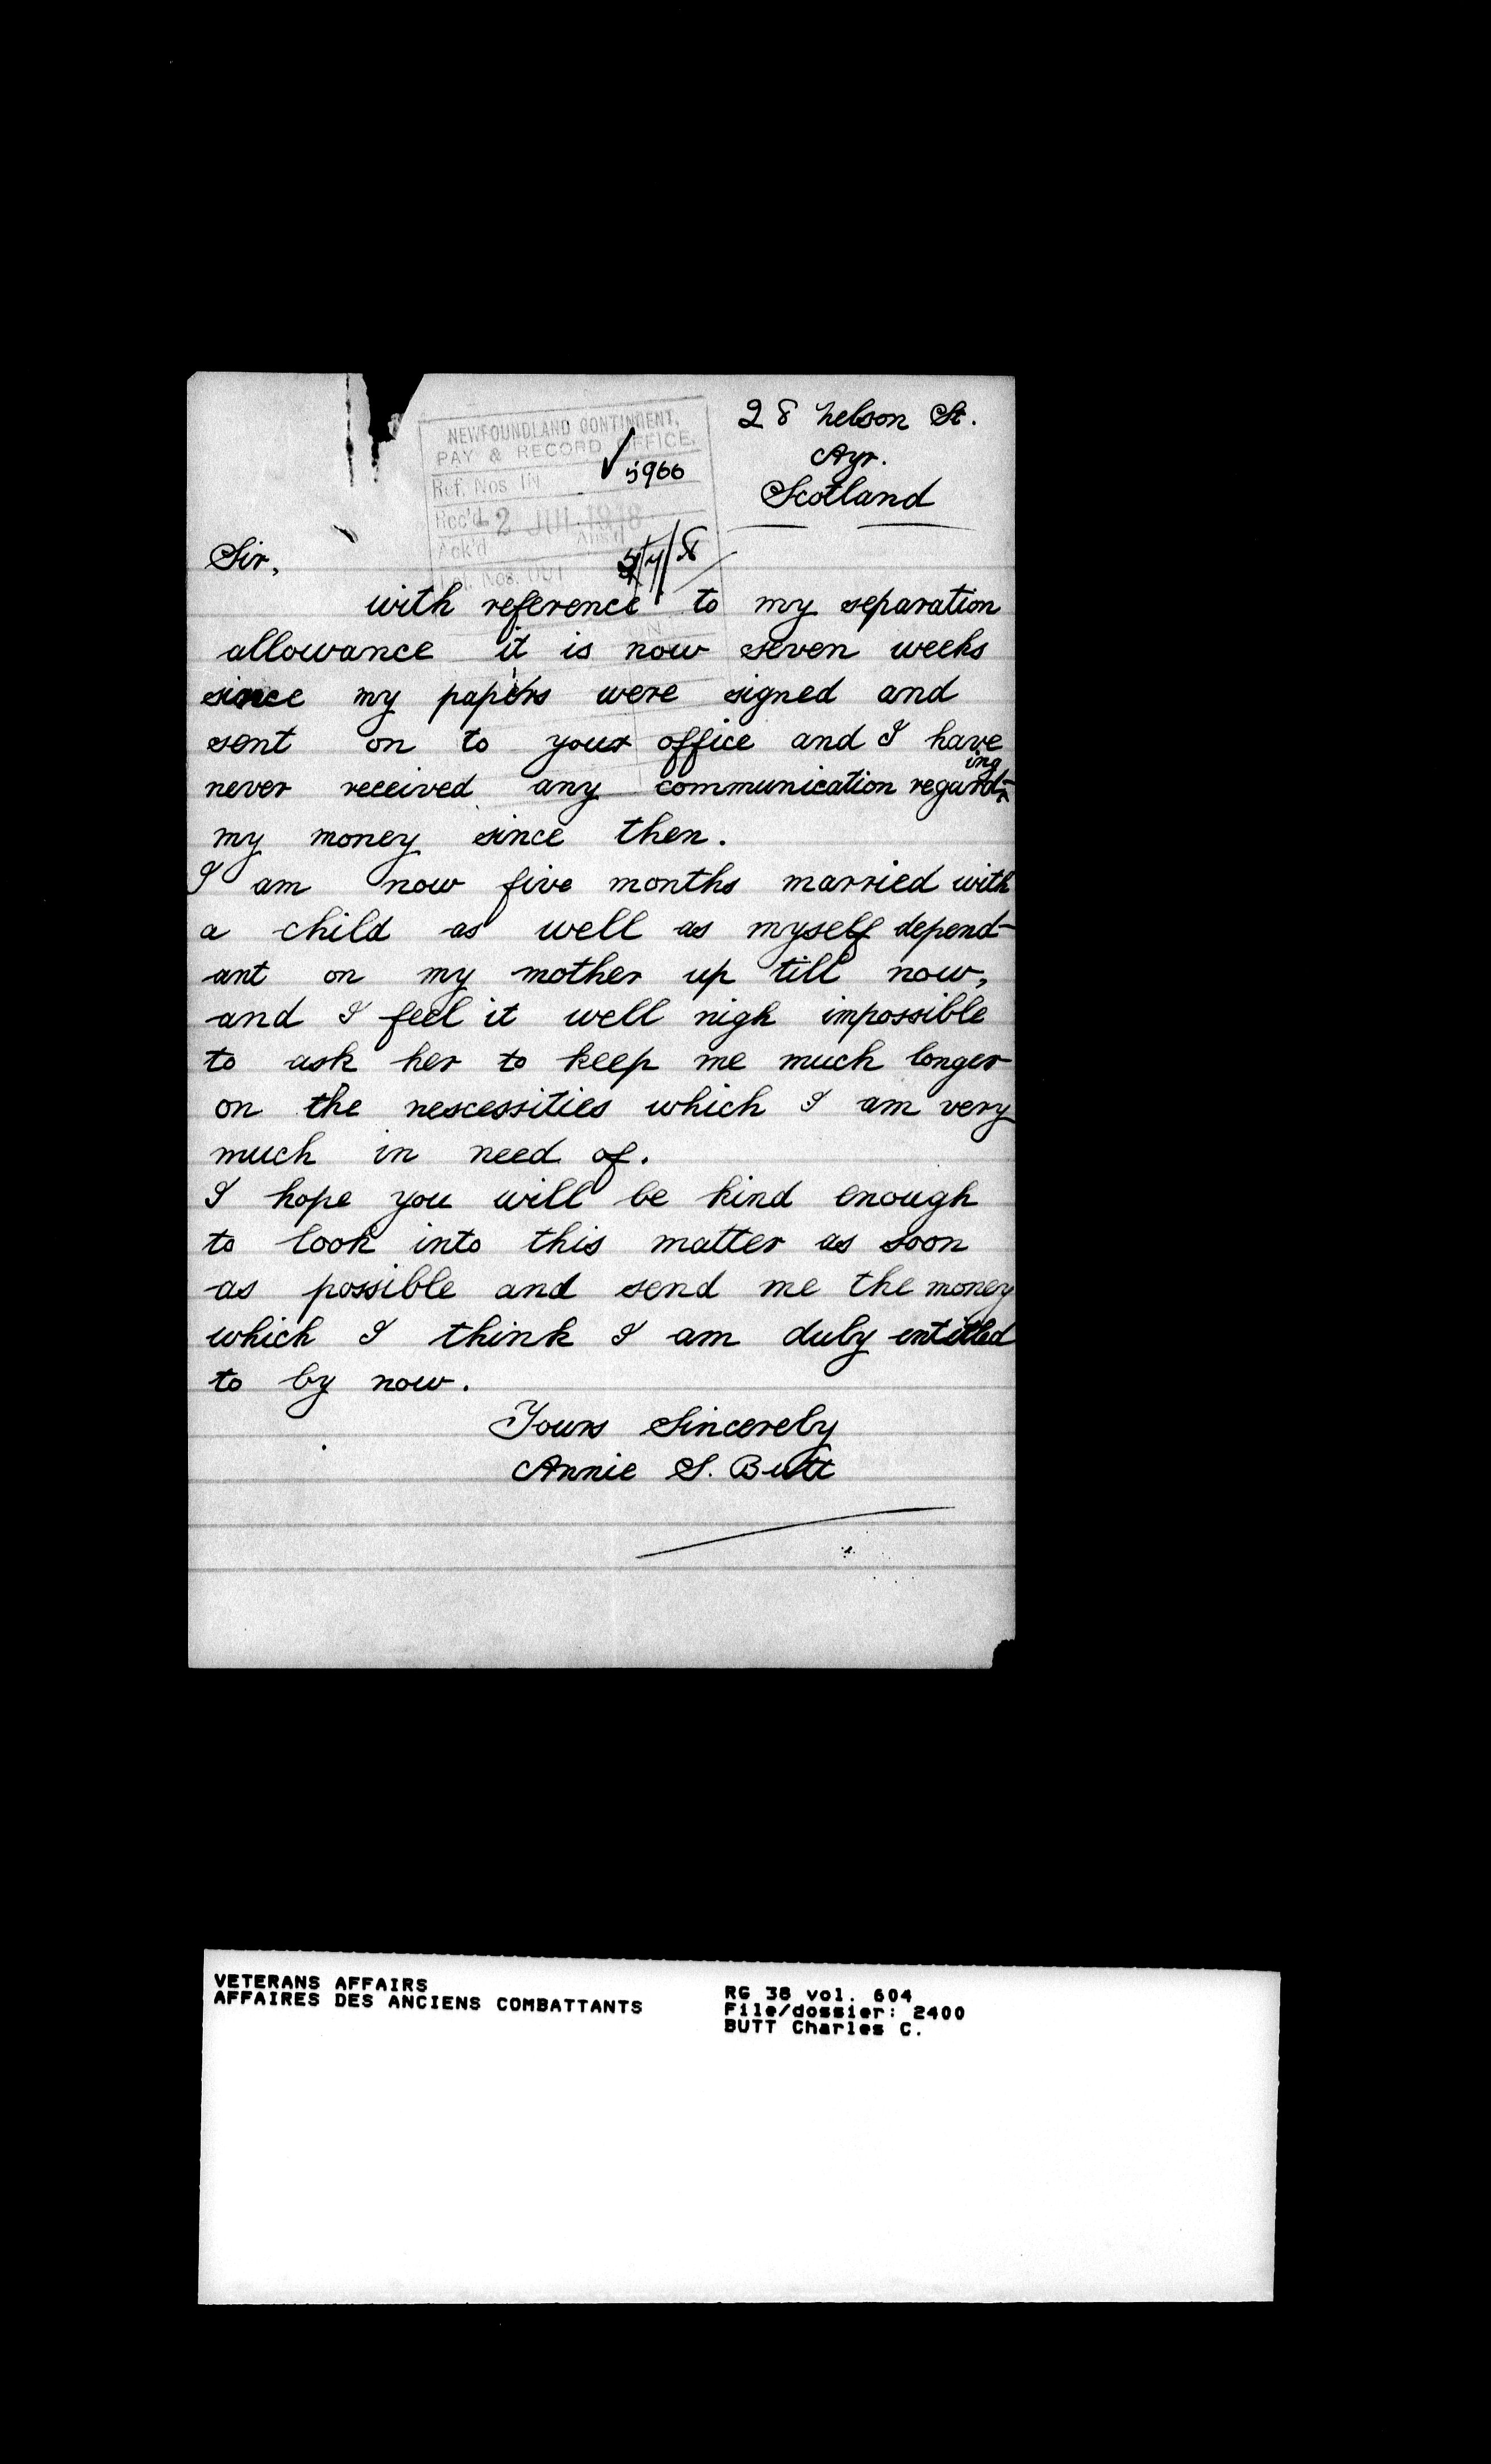 28 Nelson St.
Ayr.
Scotland
NEWFOUNDLAND CONTINGENT,
PAY & RECORD OFFICE.
Ref. Nos IN 5966
Rec'd 2 JUL 1918
Ack'd Ans'd
Nos. OUT
Sir,
with reference to my separation
allowance it is now seven weeks
since my papers were signed and
sent on to your office and I have
never received any communication regarding
my money since then.
I am now five months married with
a child as well as myself depend-
ant on my mother up till now,
and I feel it well nigh impossible
to ask her to keep me much longer
on the nescessities which I am very
much in need of.
I hope you will be kind enough
to look into this matter as soon
as possible and send me the money
which I think I am duly entitled
to by now.
Yours Sincerely
Annie S. Butt
VETERANS AFFAIRS
AFFAIRES DES ANCIENS COMBATTANTS
RG 38 vol. 604
File/dossier: 2400
BUTT Charles C.